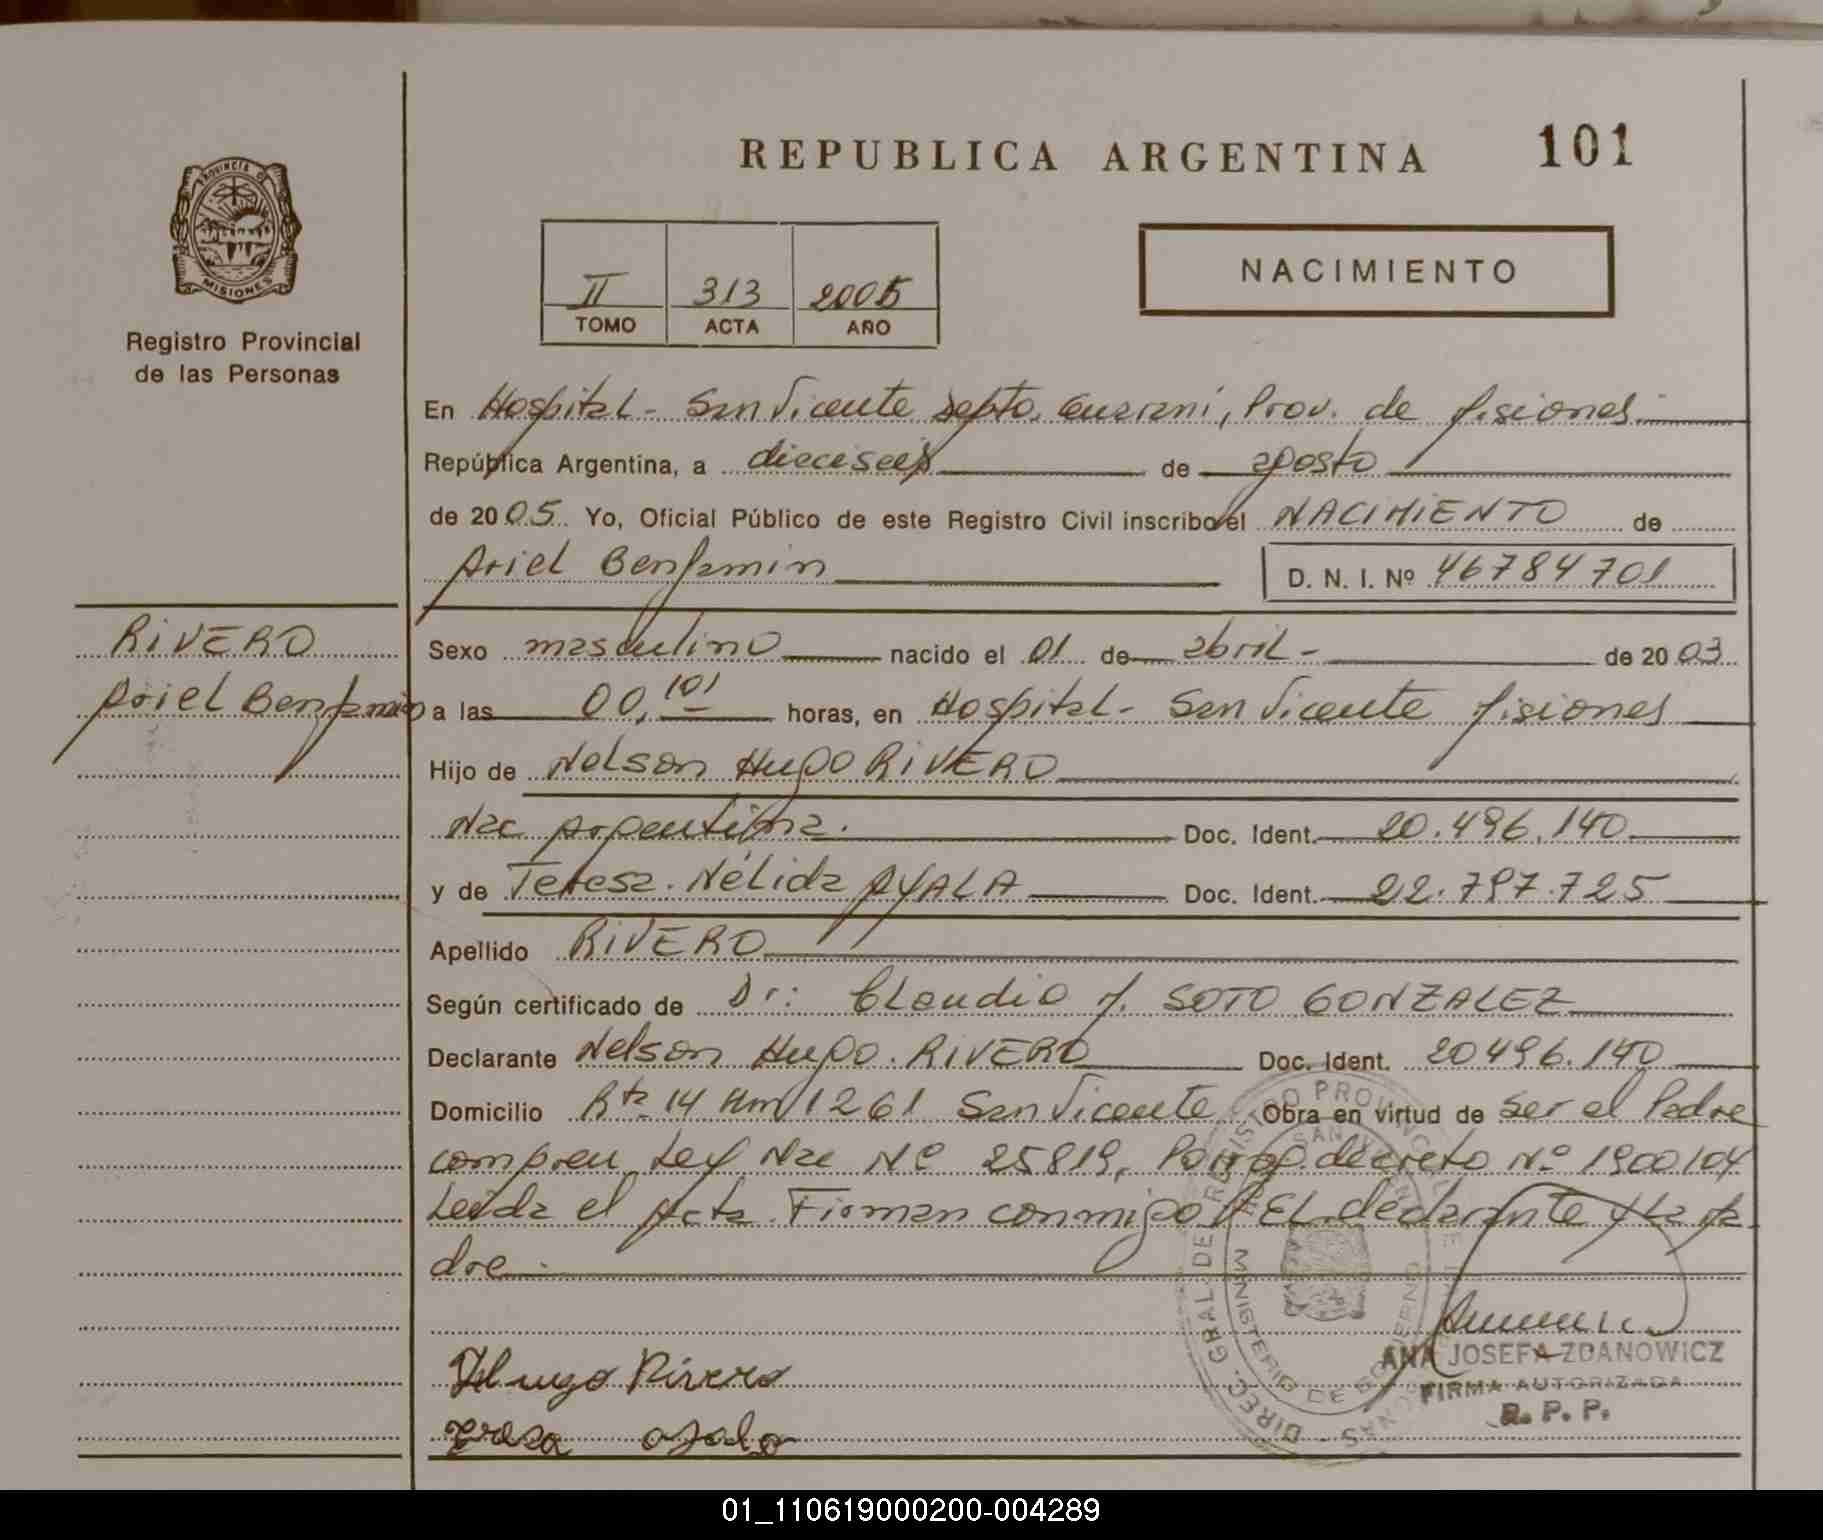 REPUBLICA ARGENTINA 101
PROVINCIA D
MISIONES
Registro Provincial
de las Personas
NACIMIENTO
II 313 2005
TOMO ACTA AÑO
En Hospital - San Vicente Depto. Guarani, Prov. de Misiones.
República Argentina, a dieciseis de agosto
de 2005. Yo, Oficial Público de este Registro Civil inscribo el NACIMIENTO de
Ariel Benjamin D. N. I. Nº 46784701
RIVERO
Ariel Benjamin
Sexo masculino nacido el 01 de abril - de 2003
a las 00,101 horas, en Hospital - San Vicente Misiones
Hijo de Nelson Hugo RIVERO
Nac Argentina. Doc. Ident. 20.496.140
y de Teresa Nélida AYALA Doc. Ident. 22.797.725
Apellido RIVERO
Según certificado de Dr: Claudio M. SOTO GONZALEZ
Declarante Nelson Hugo RIVERO Doc. Ident. 20496.140
Domicilio Rta 14 Km 1261 San Vicente Obra en virtud de ser el Padre
compren Ley Nac Nº 25819, Porrog. decreto Nº 1900104
Leida el Acta. Firman conmigo EL declarante y La Ma
dre.
DIREC. GRAL. DE REGISTRO PROVINCIAL DE
MINISTERIO DE GOBIERNO
Hugo Rivero
ANA JOSEFA ZDANOWICZ
FIRMA AUTORIZADA
R. P. P.
Teresa ayala
01_110619000200-004289